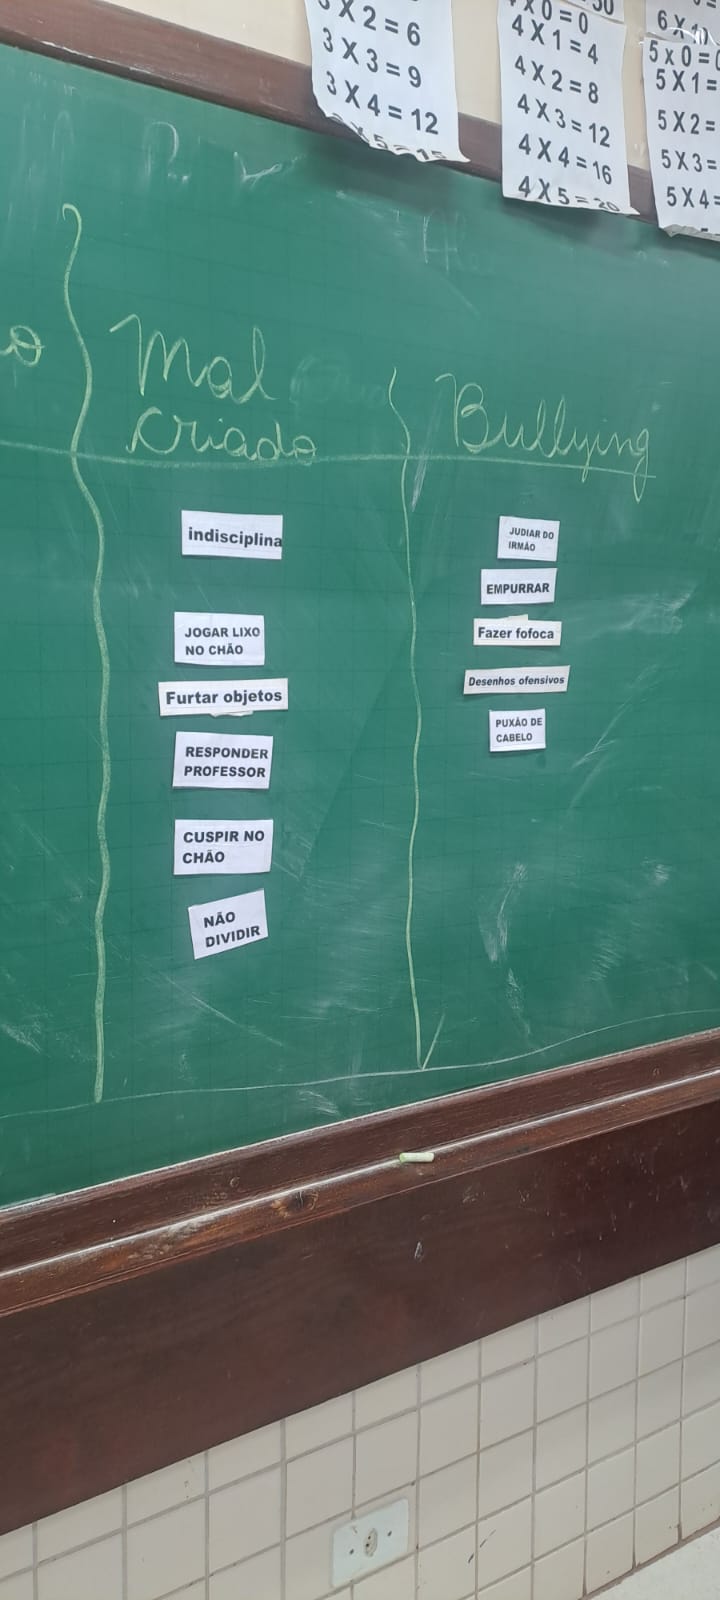 3 X 2 = 6
3 X 3 = 9
3 X 4 = 12
X 5 = 15
X 0 = 0
4 X 1 = 4
4 X 2 = 8
4 X 3 = 12
4 X 4 = 16
4 X 5 = 20
50
6 X 10
5 x 0 = 0
5 X 1 =
5 X 2 =
5 X 3 =
5 X 4 =
Mal
criado
Bullying
indisciplina
JOGAR LIXO
NO CHÃO
Furtar objetos
RESPONDER
PROFESSOR
CUSPIR NO
CHÃO
NÃO
DIVIDIR
JUDIAR DO
IRMÃO
EMPURRAR
Fazer fofoca
Desenhos ofensivos
PUXÃO DE
CABELO